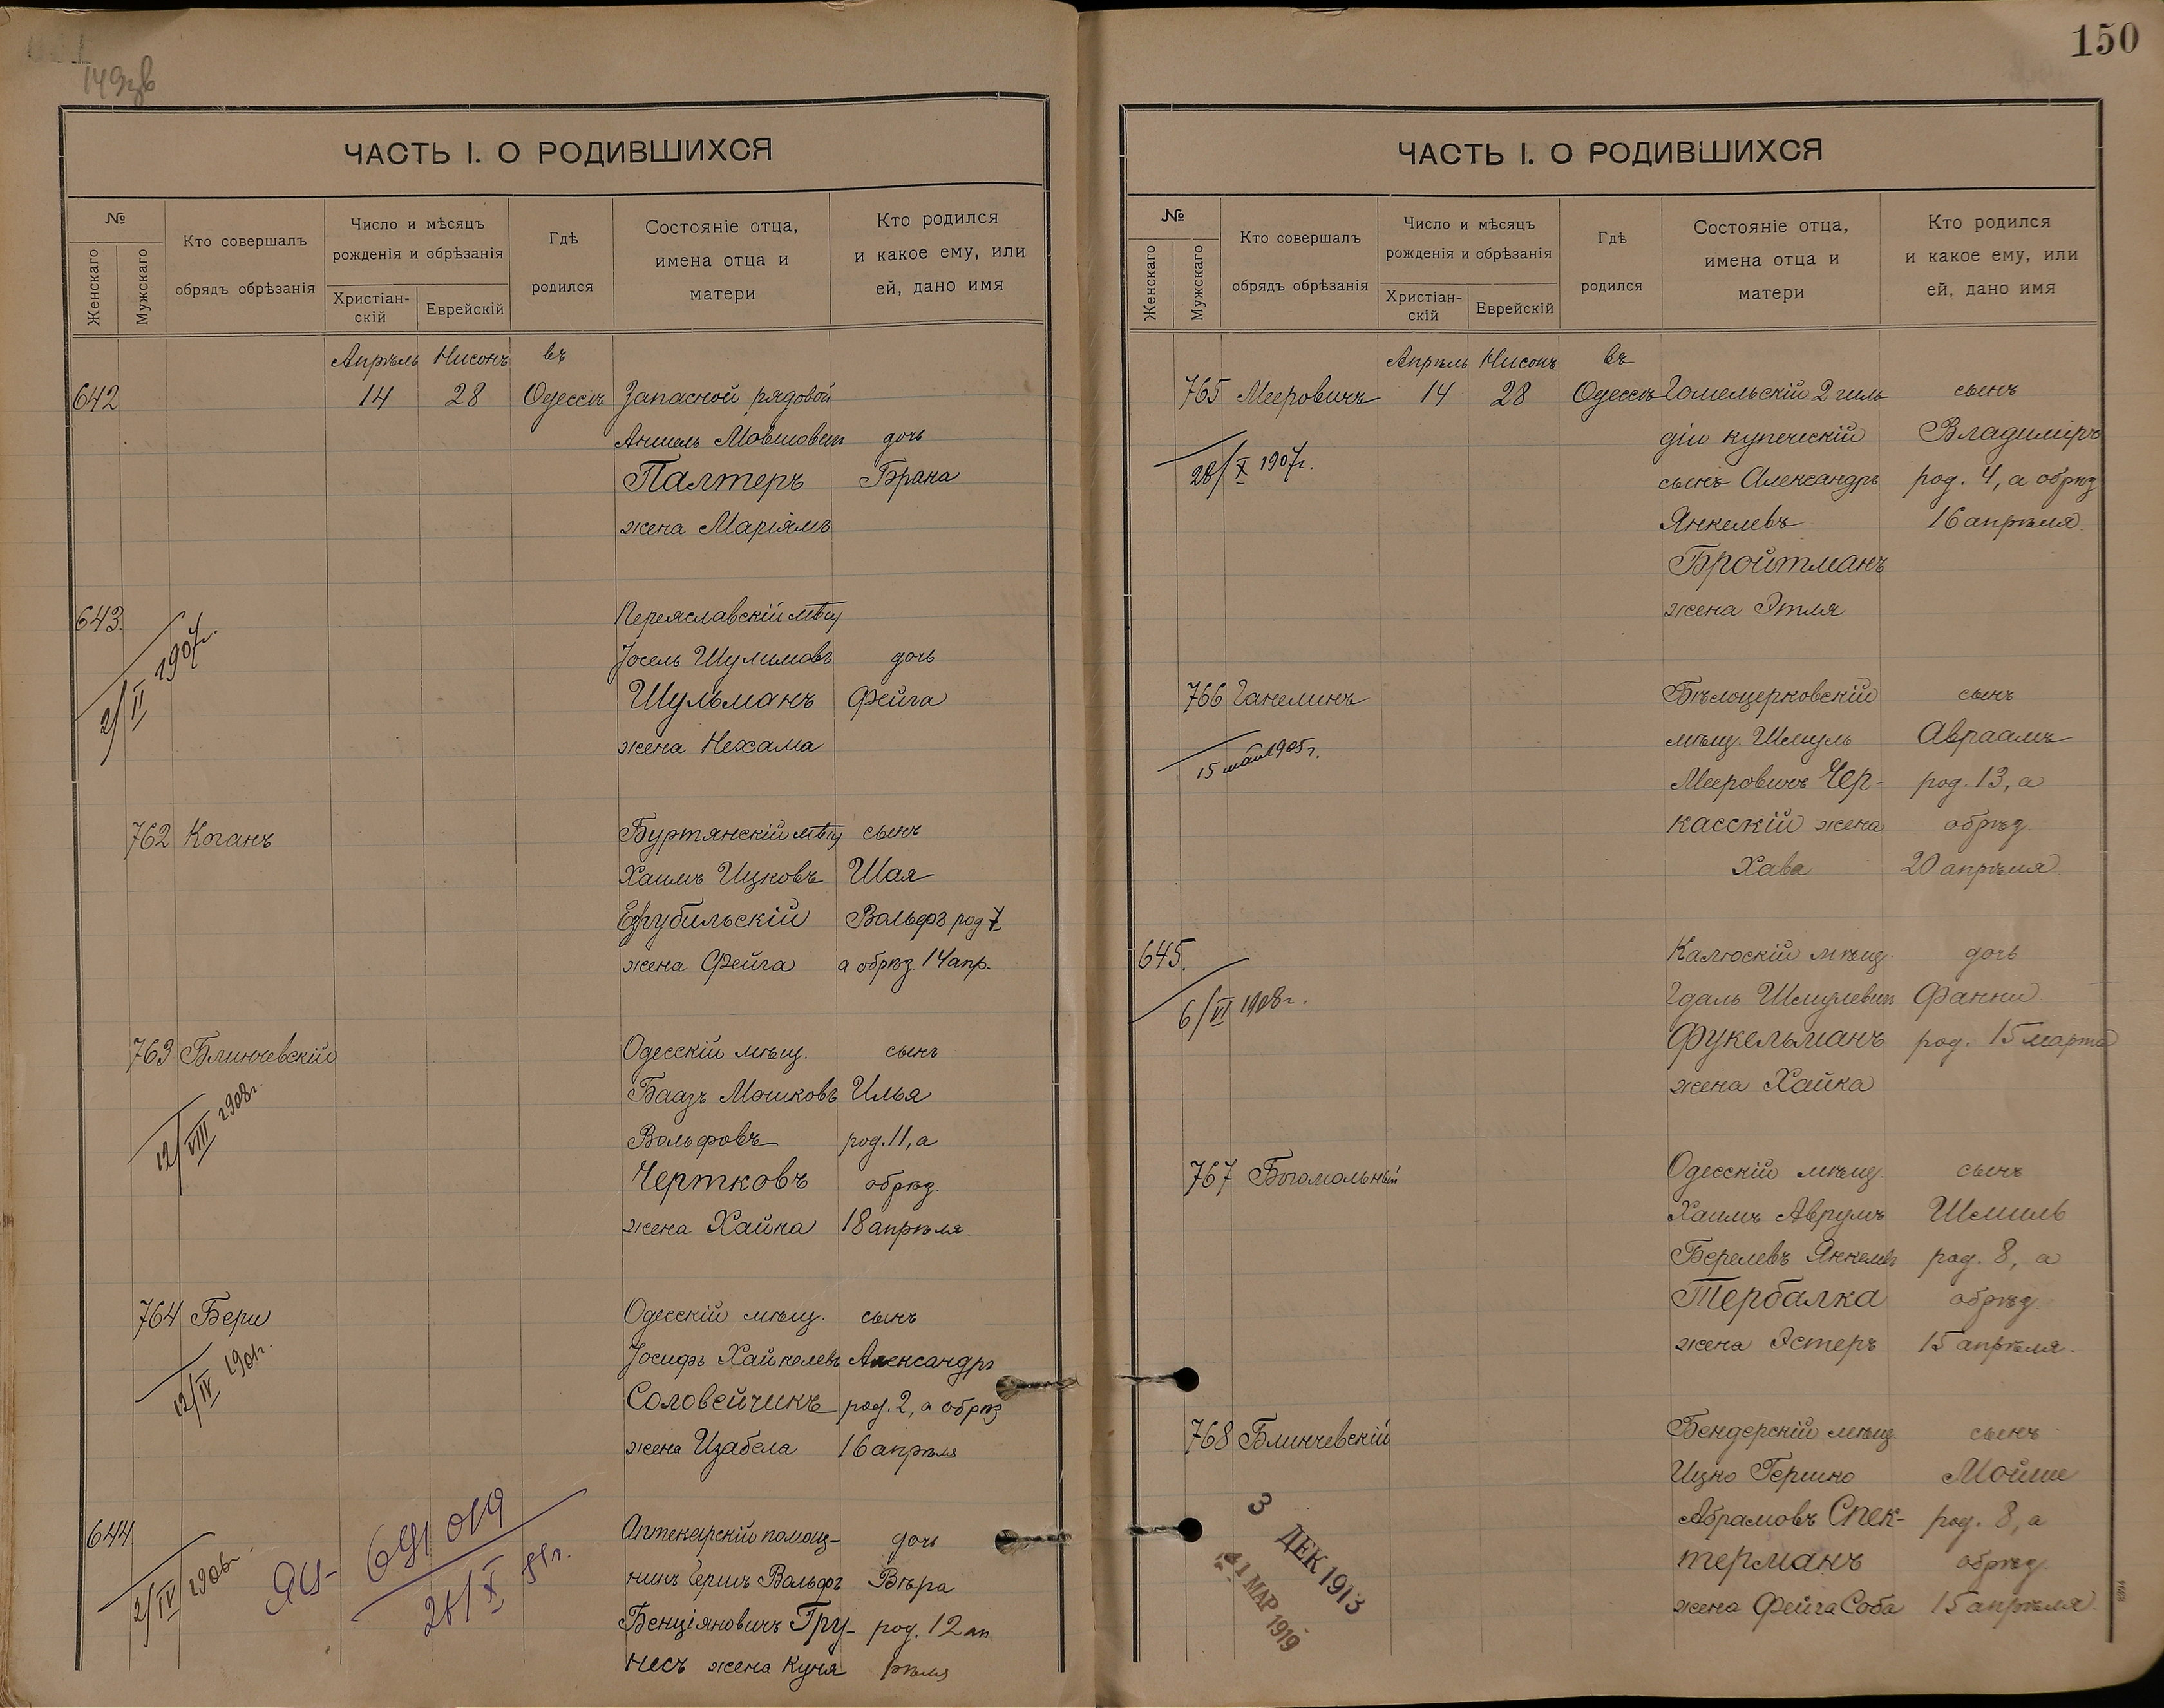 149об
ЧАСТЬ I. О РОДИВШИХСЯ
№
Женскаго
Мужскаго
Кто совершалъ
обрядъ обрѣзанія
Число и мѣсяцъ
рожденія и обрѣзанія
Христіан-
скій
Еврейскій
Гдѣ
родился
Состояніе отца,
имена отца и
матери
Кто родился
и какое ему, или
ей, дано имя
Апрѣль Нисонъ въ
642 14 28 Одессѣ Запасной рядовой
Аншель Мовшовъ дочь
Палтеръ Брана
жена Маріямъ
643. Переяславскій мѣщ
2/II 1907г.
Іосель Шулимовъ дочь
Шульманъ Фейга
жена Нехама
762 Коганъ Буртянскій мѣщ сынъ
Хаимъ Ицковъ Шая
Вольфъ род 7
жена Фейга а обрѣз. 14 апр.
763 Блинчевскій Одесскій мѣщ. сынъ
12/VIII 1908г.
Баазъ Мошковъ Илья
Вольфовъ род. 11, а
Чертковъ обрѣз.
жена Хайка 18 апрѣля.
764 Бери Одесскій мѣщ. сынъ
12/IV 1901г.
Іосифъ Хайкелевъ Александръ
Соловейчикъ род. 2, а обрѣз
жена Изабела 16 апрѣля
644 Аптекарскій помощ- дочь
2/IV 1906г.
691019
никъ Герш Вольфъ Вѣра
Бенціяновичъ Гру- род. 12 ап
несъ жена Куня рѣля
150
ЧАСТЬ I. О РОДИВШИХСЯ
№
Женскаго
Мужскаго
Кто совершалъ
обрядъ обрѣзанія
Число и мѣсяцъ
рожденія и обрѣзанія
Христіан-
скій
Еврейскій
Гдѣ
родился
Состояніе отца,
имена отца и
матери
Кто родился
и какое ему, или
ей, дано имя
Апрѣль Нисонъ въ
765 Мееровичъ 14 28 Одессѣ Гомельскій 2 гиль сынъ
діи купеческій Владиміръ
28/X 1907г.
сынъ Александръ род. 4, а обрѣз
Янкелевъ 16 апрѣля.
Бройтманъ
жена Этля
766 Ганелинъ Бѣлоцерковскій сынъ
15 май 1905г.
мѣщ. Шмуль Авраамъ
Мееровичъ Чер- род. 13, а
касскій жена обрѣз.
Хава 20 апрѣля
645. Калюскій мѣщ. дочь
6/VI 1908г.
Гдаль Шмулевъ Фанни
Фукельманъ род. 15 марта
жена Хайка
767 Богомольный Одесскій мѣщ. сынъ
Хаимъ Аврумъ Шмиль
Берелевъ Янкелевъ род. 8, а
Тербалка обрѣз
жена Эстеръ 15 апрѣля.
768 Блинчевскій Бендерскій мѣщ. сынъ
Ицко Гершко Мойше
Абрамовъ Спек- род. 8, а
терманъ обрѣз.
жена Фейга Соба 15 апрѣля.
3 ДЕК 1913
МАР 1919